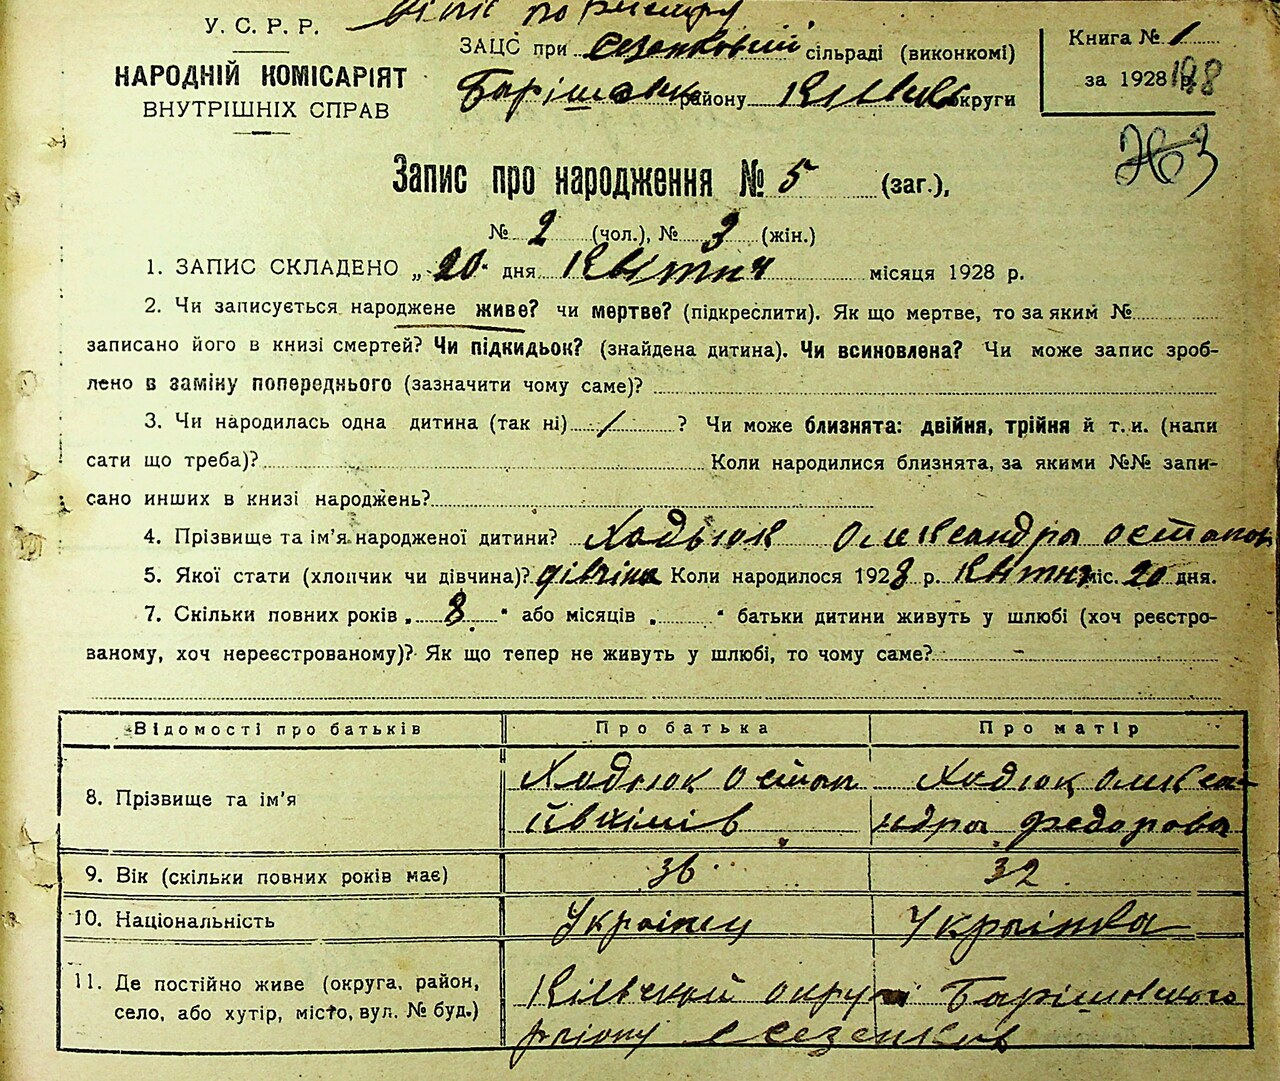 Витяг по Реєстру
У. С. Р. Р.
НАРОДНІЙ КОМІСАРІЯТ
ВНУТРІШНІХ СПРАВ
ЗАЦС при Сезенковській сільраді (виконкомі)
Барішевск району Київськ округи
Книга № 1
за 1928 р.
Запис про народження № 5 (заг.),
№ 2 (чол.), № 3 (жін.)
1. ЗАПИС СКЛАДЕНО „20" дня Квітня місяця 1928 р.
2. Чи записується народжене живе? чи мертве? (підкреслити). Як що мертве, то за яким №
записано його в книзі смертей? Чи підкидьок? (знайдена дитина). Чи всиновлена? Чи може запис зроб-
лено в заміну попереднього (зазначити чому саме)?
3. Чи народилась одна дитина (так ні) / ? Чи може близнята: двійня, трійня й т. и. (напи
сати що треба)? Коли народилися близнята, за якими №№ запи-
сано инших в книзі народжень?
4. Прізвище та ім'я народженої дитини? Ходьюк Олександра Остапов
5. Якої стати (хлопчик чи дівчина)? дівчіна Коли народилося 1928 р. Квітня міс. 20 дня.
7. Скільки повних років „ 8 " або місяців „ " батьки дитини живуть у шлюбі (хоч реєстро-
ваному, хоч нереєстрованому)? Як що тепер не живуть у шлюбі, то чому саме? -
Відомості про батьків Про батька Про матір
8. Прізвище та ім'я Ходіюк Остап Ходіюк Олекса-
Ївхімів ндра Федорова
9. Вік (скільки повних років має) 36 32
10. Національність Українец Українка
11. Де постійно живе (округа, район,
село, або хутір, місто, вул. № буд.)
Київської округи Барішовського
району с Сезенков